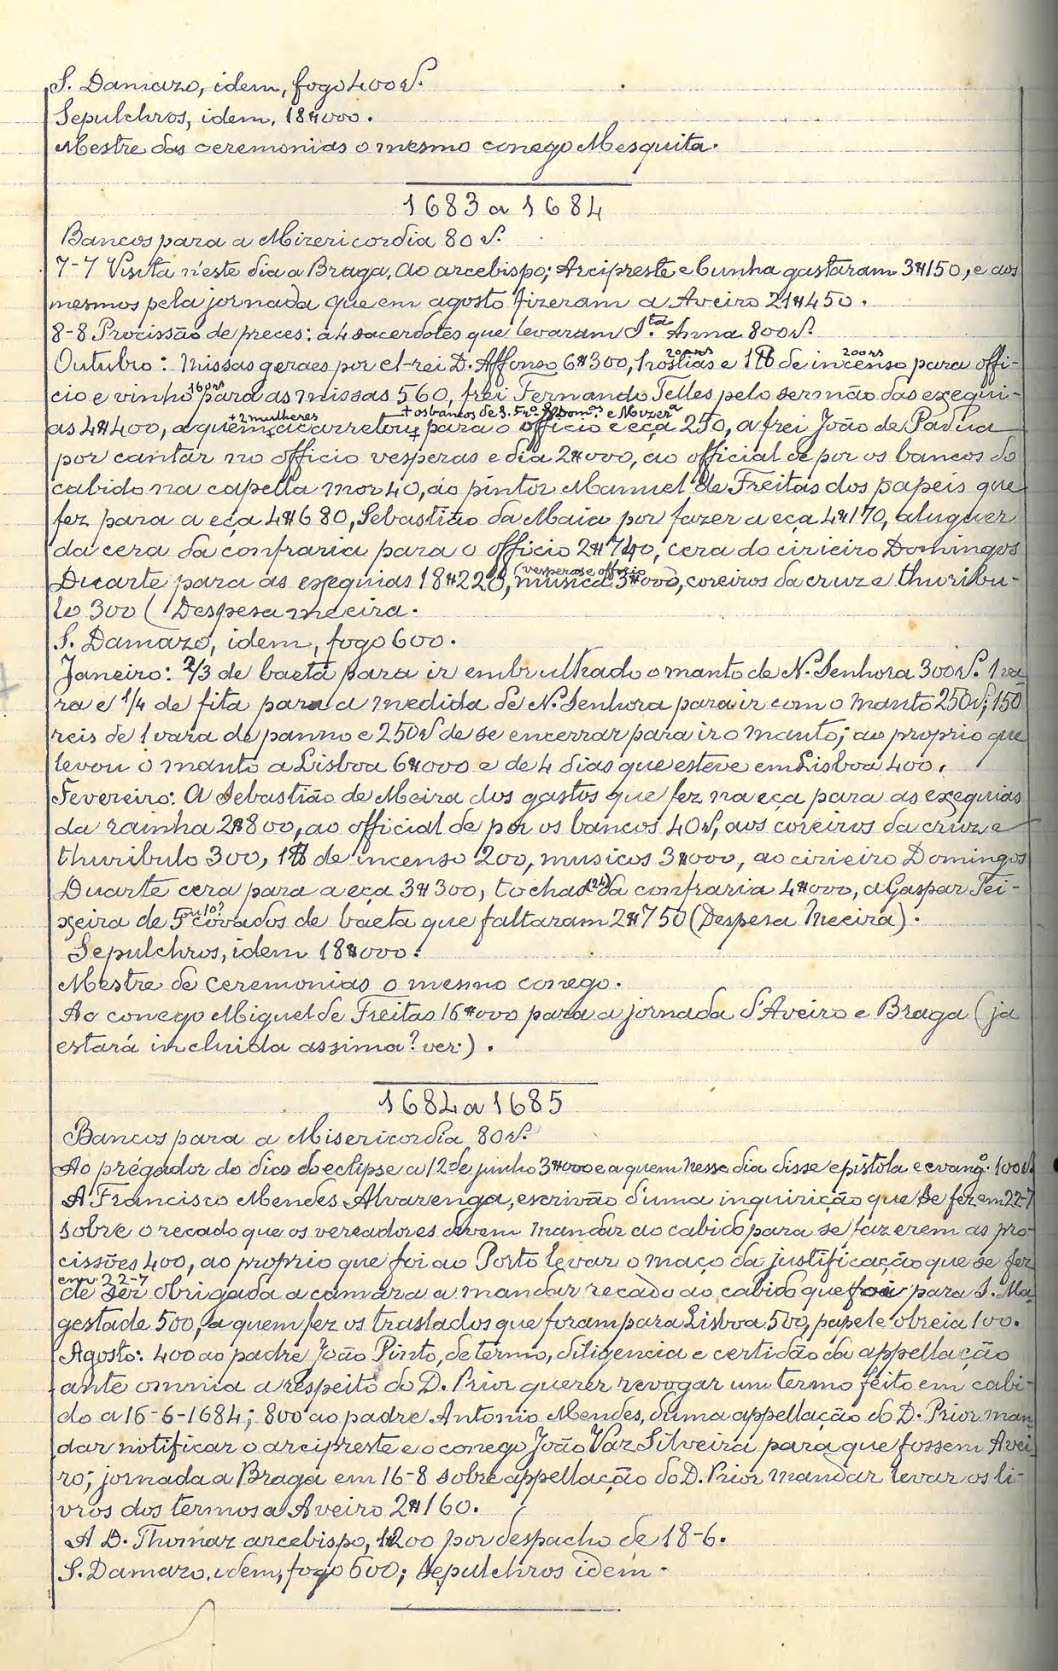 S. Damazo, idem, fogo 400 rs.
Sepulchros, idem, 18$000.
Mestre das ceremonias o mesmo conego Mesquita.
1683 a 1684
Bancos para a Mizericordia 80 rs.
7-7 Visita n'este dia a Braga, ao arcebispo; Arcipreste e Cunha gastaram 3$150, e aos
mesmos pela jornada que em agosto fizeram a Aveiro 21$450.
8-8 Procissão de preces: a 4 sacerdotes que levaram S.ta Anna 800 rs.
Outubro: Missas geraes por el-rei D. Affonso 6$300, hostias e 1 lb de incenso para offi-
200 rs
cio e vinho para as missas 560, frei Fernando Telles pelo sermão das exequi-
160 rs
as 4$400, a quem acarretou para o officio e eça 250, a frei João de Padua
+ 2 mulheres + os bancos de S. Fr.co S. Dom.os e Mizer.a
por cantar no officio vesperas e dia 2$000, ao official de por os bancos do
cabido na capella mor 40, ao pintor Manuel de Freitas dos papeis que
fez para a eça 4$680, Sebastião da Maia por fazer a eça 4$170, aluguer
da cera da confraria para o officio 2$740, cera do cirieiro Domingos
Duarte para as exequias 18$228, musica 3$000, coreiros da cruz e thuribu-
(vesperas e officio)
lo 300 (Despesa meeira.
S. Damazo, idem, fogo 600.
Janeiro: 2/3 de baeta para ir embrulhado o manto de N. Senhora 300 rs. 1 va-
ra e 1/4 de fita para a medida de N. Senhora para ir com o manto 250 rs; 150
reis de 1 vara de panno e 250 rs de se encerrar para ir o manto; ao proprio que
levou o manto a Lisboa 6$000 e de 4 dias que esteve em Lisboa 400.
Fevereiro: A Sebastião de Meira dos gastos que fez na eça para as exequias
da rainha 2$800, ao official de por os bancos 40 rs, aos coreiros da cruz e
thuribulo 300, 1 lb de incenso 200, musicos 3$000, ao cirieiro Domingos
Duarte cera para a eça 3$300, tochas (24) da confraria 4$000, a Gaspar Tei-
xeira de 5 ou 10? covados de baeta que faltaram 2$750 (Despesa Meeira).
Sepulchros, idem 18$000.
Mestre de ceremonias o mesmo conego.
Ao conego Miguel de Freitas 16$000 para a jornada d'Aveiro e Braga (ja
estará incluida assima? ver.).
1684 a 1685
Bancos para a Misericordia 80 rs.
Ao prégador do dia do eclipse a 12 de junho 3$000 e a quem nesse dia disse epistola e evang.º 100 rs.
A Francisco Mendes Alvarenga, escrivão d'uma inquirição que se fez em 22-7
sobre o recado que os vereadores devem mandar ao cabido para se fazerem as pro-
cissões 400, ao proprio que foi ao Porto levar o maço da justificação que se fez
em 22-7
de ser obrigada a camara a mandar recado ao cabido que foi para S. Ma-
gestade 500, a quem fez os traslados que foram para Lisboa 500, papel e obreia 100.
Agosto: 400 ao padre João Pinto, de termo, diligencia e certidão da appellação
ante omnia a respeito do D. Prior querer revogar um termo feito em cabi-
do a 16-6-1684; 800 ao padre Antonio Mendes, d'uma appellação do D. Prior man-
dar notificar o arcipreste e o conego João Vaz Silveira para que fossem Avei-
ro; jornada a Braga em 16-8 sobre appellação do D. Prior mandar levar os li-
vros dos termos a Aveiro 2$160.
A D. Thomaz arcebispo, 1200 por despacho de 18-6.
S. Damazo, idem, fogo 600; Sepulchros idem.